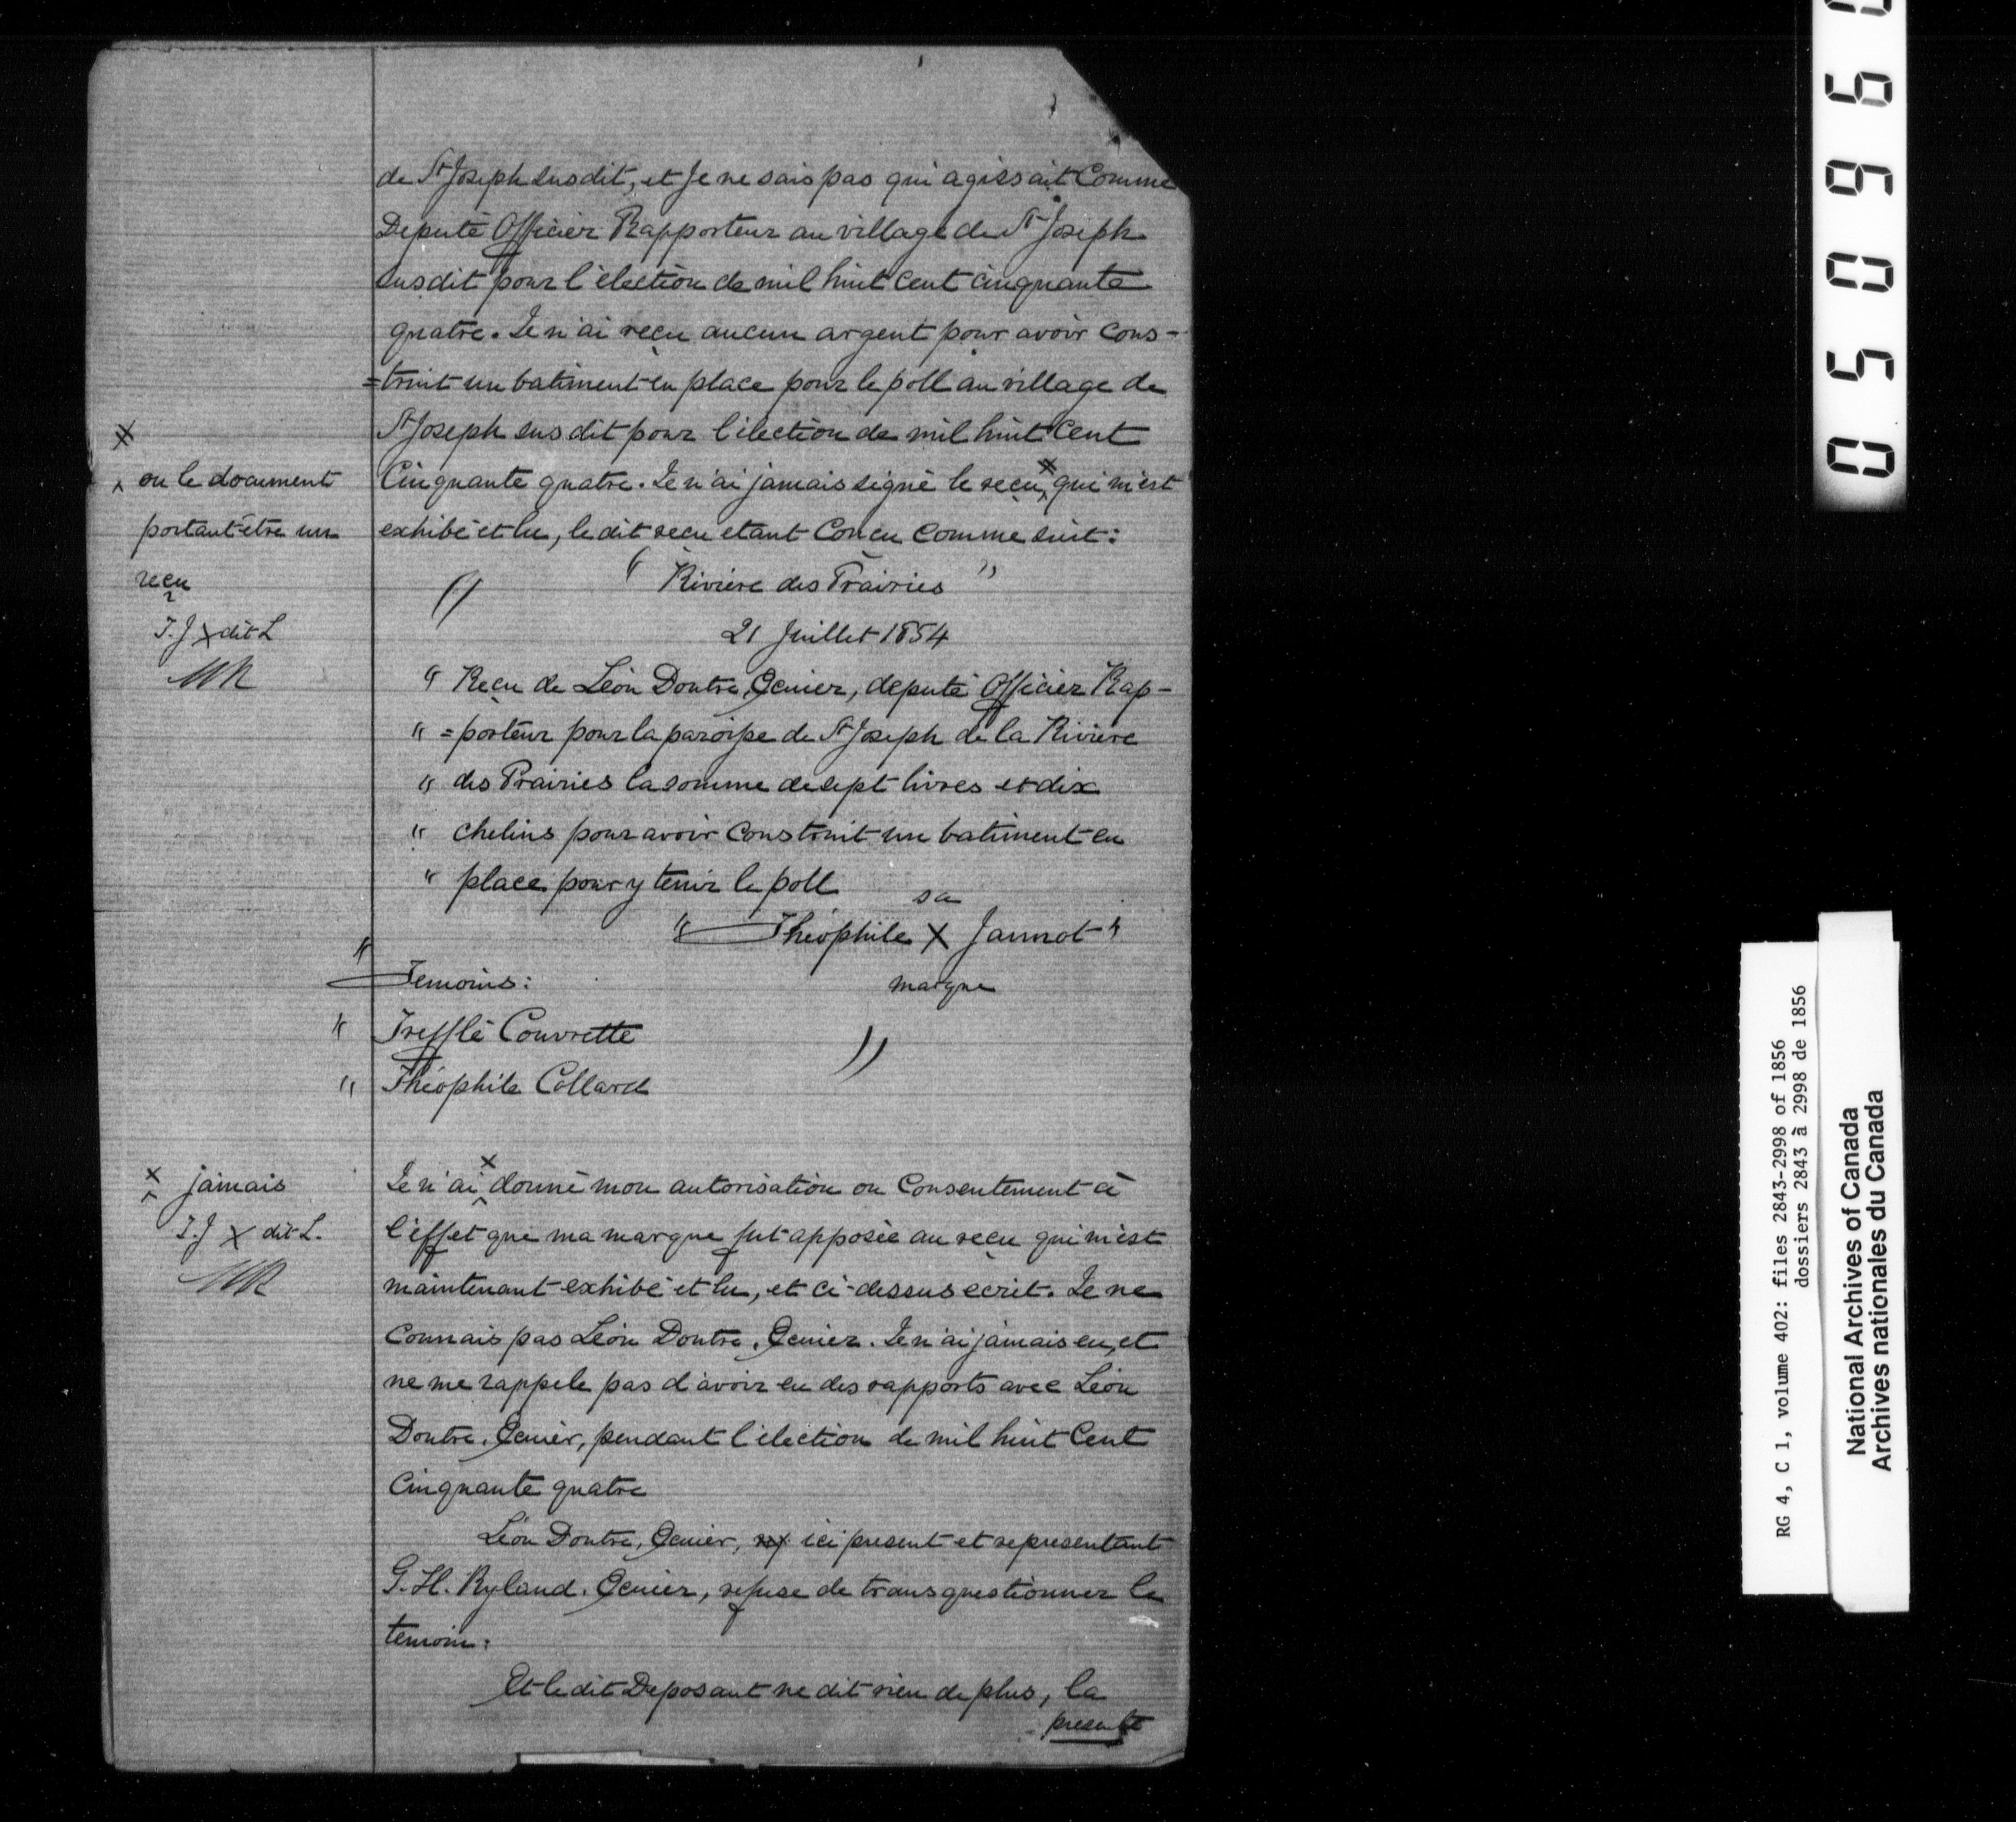 de St Joseph susdit, et Je ne sais pas qui agissait Comme
Député Officier Rapporteur au village de St Joseph
susdit pour l'élection de mil huit Cent cinquante
quatre. Je n'ai reçu aucun argent pour avoir cons-
=truit un batiment en place pour le poll au village de
St Joseph susdit pour l'élection de mil huit Cent
Cinquante quatre. Je n'ai jamais signé le reçu, qui m'est
exhibé et lu, le dit reçu etant Concu Comme suit:
x
ou le document
portant être un
reçu
T.J x dit L
" Rivière des Prairies "
21 Juillet 1854
" Reçu de Léon Doutre, Ecuier, deputé Officier Rap-
" =porteur pour la paroisse de St Joseph de la Rivière
" des Prairies la somme de sept livres et dix
" chelins pour avoir Construit un batiment en
" place pour y tenir le poll
sa
" Théophile X Jannot "
marque
" Temoins:
" Trefflé Couvrette
" Théophile Collard
x jamais
T.J x dit L.
Je n'ai x donné mon autorisation ou Consentement à
l'effet que ma marque fut apposée au reçu qui m'est
maintenant exhibé et lu, et ci-dessus ecrit. Je ne
Connais pas Léon Doutre, Ecuier. Je n'ai jamais eu, et
ne me rappele pas d'avoir eu des rapports avec Léon
Doutre, Ecuier, pendant l'élection de mil huit Cent
Cinquante quatre
Léon Doutre, Ecuier, ici present et representant
G. H. Ryland, Ecuier, refuse de transquestionner le
temoin.
Et le dit Deposant ne dit rien de plus, la
presente
RG 4, C 1, volume 402: files 2843-2998 of 1856
dossiers 2843 à 2998 de 1856
National Archives of Canada
Archives nationales du Canada